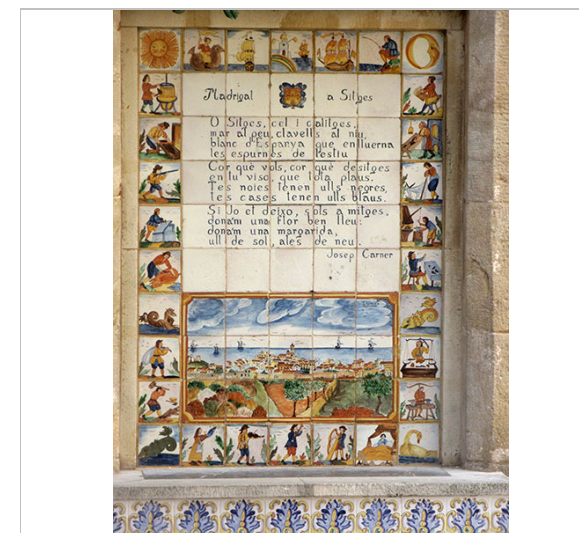 Madrigal a Sitges
O Sitges, cel i calitges,
mar al peu, clavells al niu,
blanc d'Espanya que enlluerna
les espurnes de l'estiu
Cor què vols, cor què desitges
en tu viso, que tota plaus.
Tes noies tenen ulls negres,
tes cases tenen ulls blaus.
Si jo et deixo, sols a mitges,
dona'm una flor ben lleu:
dona'm una margarida,
ull de sol, ales de neu.
Josep Carner